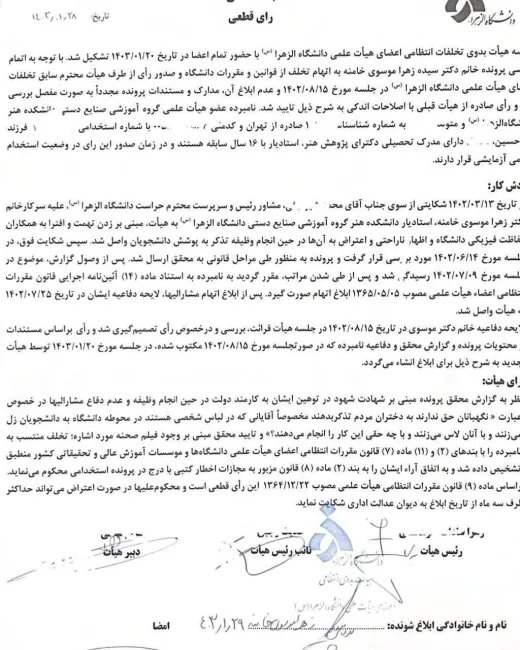 دانشگاه الزهرا
تاریخ: ۱۴۰۳/۰۱/۲۸
رای قطعی
هیأت بدوی تخلفات انتظامی اعضای هیأت علمی دانشگاه الزهرا (س) با حضور تمام اعضا در تاریخ ۱۴۰۳/۰۱/۲۰ تشکیل شد. با توجه به اتمام
پرونده خانم دکتر سیده زهرا موسوی خامنه به اتهام تخلف از قوانین و مقررات دانشگاه و صدور رأی از طرف هیأت محترم سابق تخلفات
هیأت علمی دانشگاه الزهرا (س) در جلسه مورخ ۱۴۰۲/۰۸/۱۵ و عدم ابلاغ آن، مدارک و مستندات پرونده مجدداً به صورت مفصل بررسی
و رأی صادره از هیأت قبلی با اصلاحات اندکی به شرح ذیل تایید شد. نامبرده عضو هیأت علمی گروه آموزشی صنایع دستی دانشکده هنر
(س) و به شماره شناسنامه ۱ صادره از تهران و کدملی با شماره استخدامی ۱ فرزند
حسین، دارای مدرک تحصیلی دکترای پژوهش هنر، استادیار با ۱۶ سال سابقه هستند و در زمان صدور این رای در وضعیت استخدام
آزمایشی قرار دارند.
کار:
تاریخ ۱۴۰۲/۰۳/۱۳ شکایتی از سوی جناب آقای مشاور رئیس و سرپرست محترم حراست دانشگاه الزهرا (س)، علیه سرکارخانم
دکتر زهرا موسوی خامنه، استادیار دانشکده هنر گروه آموزشی صنایع دستی دانشگاه الزهرا (س) به هیأت، مبنی بر زدن تهمت و افترا به همکاران
حفاظت فیزیکی دانشگاه و اظهار ناراحتی و اعتراض به آن‌ها در حین انجام وظیفه تذکر به پوشش دانشجویان واصل شد. سپس شکایت فوق، در
جلسه مورخ ۱۴۰۲/۰۶/۱۴ مورد بررسی قرار گرفت و پرونده به منظور طی مراحل قانونی به محقق ارسال شد. پس از وصول گزارش، موضوع در
جلسه مورخ ۱۴۰۲/۰۷/۰۹ رسیدگی شد و پس از طی شدن مراتب، مقرر گردید به نامبرده به استناد ماده (۱۴) آئین‌نامه اجرایی قانون مقررات
انتظامی اعضاء هیأت علمی مصوب ۱۳۶۵/۰۵/۰۵ ابلاغ اتهام صورت گیرد. پس از ابلاغ اتهام مشارالیها، لایحه دفاعیه ایشان در تاریخ ۱۴۰۲/۰۷/۲۵
هیأت واصل شد.
لایحه دفاعیه خانم دکتر موسوی در تاریخ ۱۴۰۲/۰۸/۱۵ در جلسه هیأت قرائت، بررسی و درخصوص رأی تصمیم‌گیری شد و رأی براساس مستندات
و محتویات پرونده و گزارش محقق و دفاعیه نامبرده که در صورتجلسه مورخ ۱۴۰۲/۰۸/۱۵ مکتوب شده، در جلسه مورخ ۱۴۰۳/۰۱/۲۰ توسط هیأت
جدید به شرح ذیل برای ابلاغ انشاء می‌گردد.
رای هیأت:
نظر به گزارش محقق پرونده مبنی بر شهادت شهود در توهین ایشان به کارمند دولت در حین انجام وظیفه و عدم دفاع مشارالیها در خصوص
عبارت « نگهبانان حق ندارند به دختران مردم تذکر بدهند مخصوصاً آقایانی که در لباس شخصی هستند در محوطه دانشگاه به دانشجویان زل
می‌زنند و با آنان لاس می‌زنند و با چه حقی این کار را انجام می‌دهند؟» و تایید محقق مبنی بر وجود فیلم صحنه مورد اشاره؛ تخلف منتسب به
نامبرده را با بندهای (۲) و (۱۱) ماده (۷) قانون مقررات انتظامی اعضای هیأت علمی دانشگاه‌ها و موسسات آموزش عالی و تحقیقاتی کشور منطبق
تشخیص داده شد و به اتفاق آراء ایشان را به بند (۲) ماده (۸) قانون مزبور به مجازات اخطار کتبی با درج در پرونده استخدامی محکوم می‌نماید.
براساس ماده (۹) قانون مقررات انتظامی هیأت علمی مصوب ۱۳۶۴/۱۲/۲۲ این رأی قطعی است و محکوم‌علیها در صورت اعتراض می‌تواند حداکثر
ظرف سه ماه از تاریخ ابلاغ به دیوان عدالت اداری شکایت نماید.
رئیس هیأت نائب رئیس هیأت دبیر هیأت
هیات بدوی انتظامی
نام و نام خانوادگی ابلاغ شونده: امضا